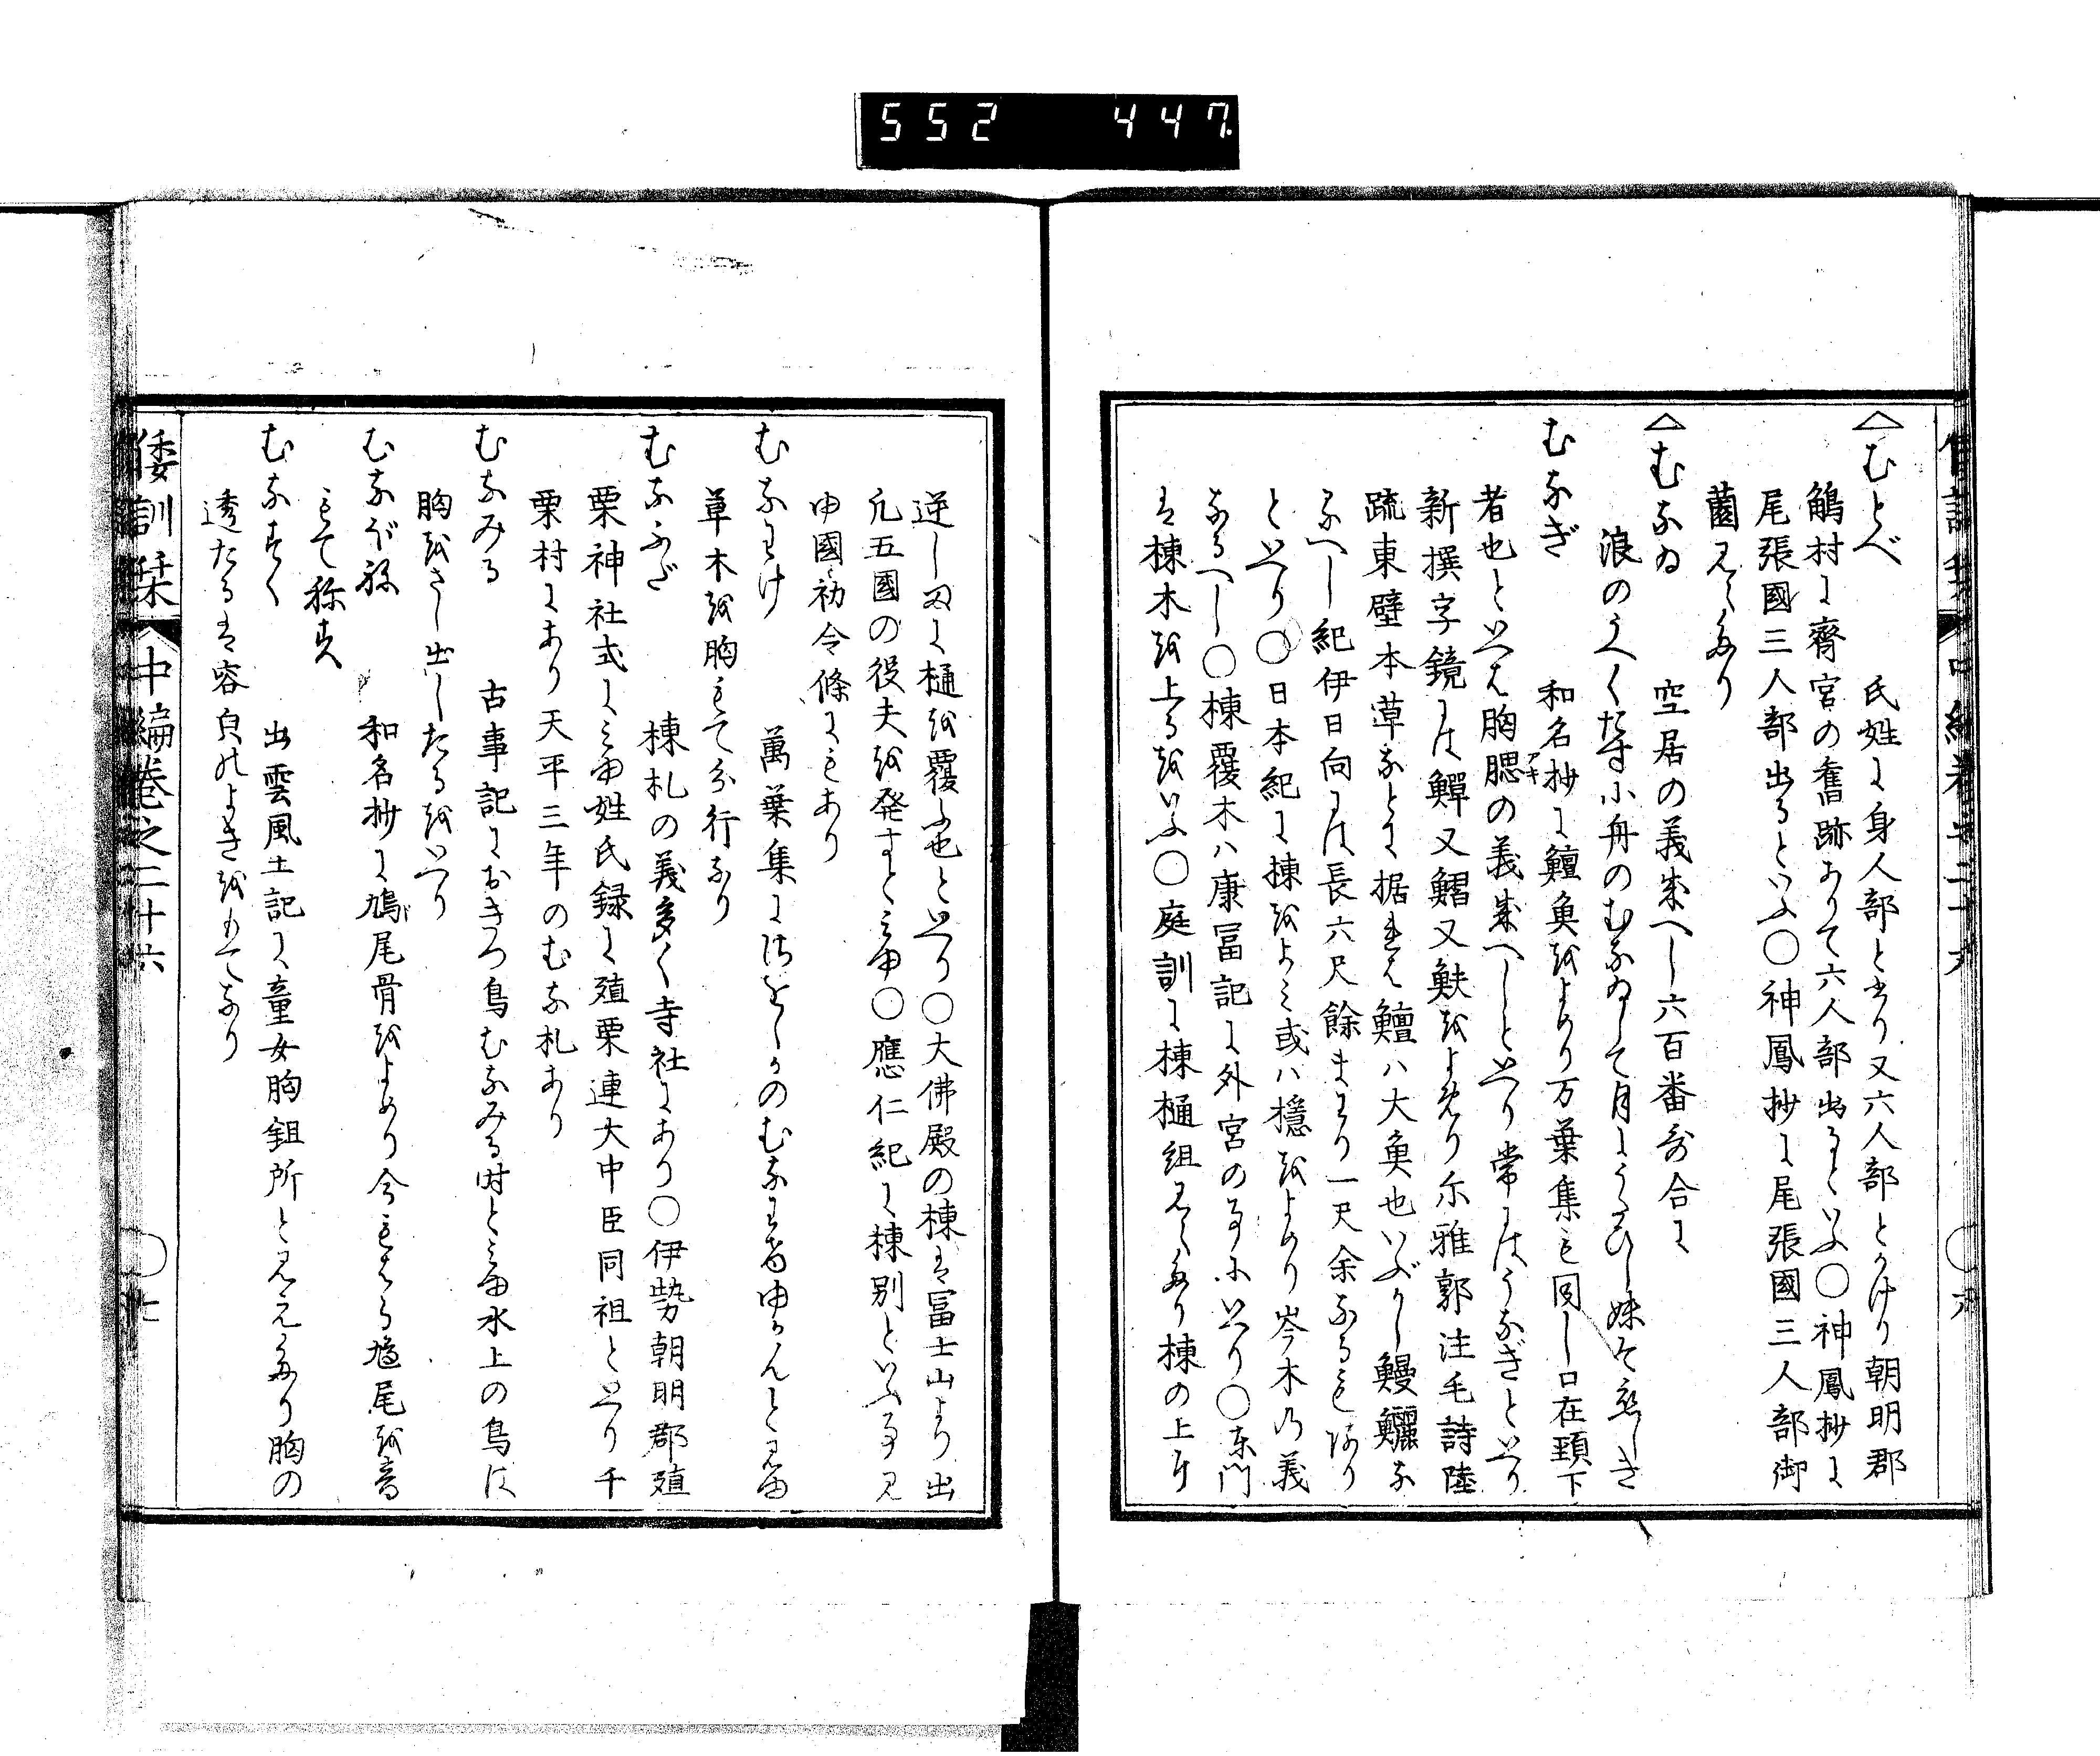 552 447
△むとべ 氏姓に身人部と書り又六人部とかけり朝明郡
鵤村に齋宮の舊跡ありて六人部出るといふ〇神鳳抄に
尾張國三人部出るといふ〇神鳳抄に尾張國三人部御
薗見えたり
△むなゐ 空居の義成へし六百番哥合に
浪のうへくたす小舟のむなゐして月にうたひし妹そ恋しき
むなぎ 和名抄に鱣魚をよめり万葉集も同し口在頸下
者也といへは胸腮の義成へしといへり常にはうなぎといへり
新撰字鏡には鱓又鰼又䱀をよめり尓雅郭注毛詩陸
疏東壁本草なとに据れは鱣ハ大魚也いぶかし鰻鱺な
るへし紀伊日向には長六尺餘まわり一尺余なるもあり
といへり〇日本紀に棟をよみ或ハ檼をよめり岑木乃義
なるへし〇棟覆木ハ康冨記に外宮の事にいへり〇東門
は棟木を上るをいふ〇庭訓に棟樋組見えたり棟の上に
逆しまに樋を覆ふ也といへり〇大佛殿の棟は冨士山より出
凡五國の役夫を発すと見ゆ〇應仁紀に棟別といふ事見
ゆ國初令條にもあり
むなわけ 萬葉集にさをしかのむなわけゆかんと見ゆ
草木を胸もて分行なり
むなふだ 棟札の義多く寺社にあり〇伊勢朝明郡殖
栗神社式に見ゆ姓氏録に殖栗連大中臣同祖といへり千
栗村にあり天平三年のむな札あり
むなみる 古事記におきつ鳥むなみる時と見ゆ水上の鳥は
胸をさし出したるをいへり
むながね 和名抄に鳩尾骨をよめり今もはら鳩尾を音
もて称す
むなすく 出雲風土記に童女胸鉏所と見えたり胸の
透たるは容㒵のよきをもてなり
倭訓栞 中編巻之二十六 〇七